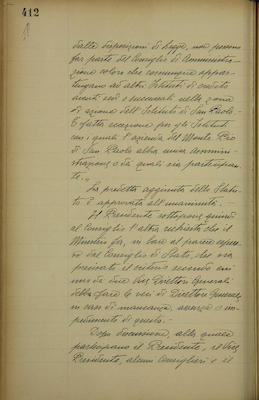 412
dalle disposizioni di legge, non possono
far parte del Consiglio di Amministra-
zione coloro che comunque appar-
tengano ad altri Istituti di credito
aventi sedi o succursali nella zona
di azione dell'Istituto di San Paolo.
È fatta eccezione per gli Istituti
con i quali l'azienda del Monte Pio
di San Paolo abbia una ammini-
strazione o da quali sia partecipa-
te.„
La predetta aggiunta dello Statu-
to è approvata all'unanimità.-
Il Presidente sottopone quindi
al Consiglio l'altra richiesta che il
Ministero fa, in base al parere espres-
so dal Consiglio di Stato, che sia
precisato il criterio secondo cui
uno dei due Vice Direttori Generali
della faccia le veci di Direttore Generale,
in caso di mancanza, assenza o im-
pedimento di questo.-
Dopo discussione, alla quale
partecipano il Presidente, il Vice
Presidente, alcuni Consiglieri e il